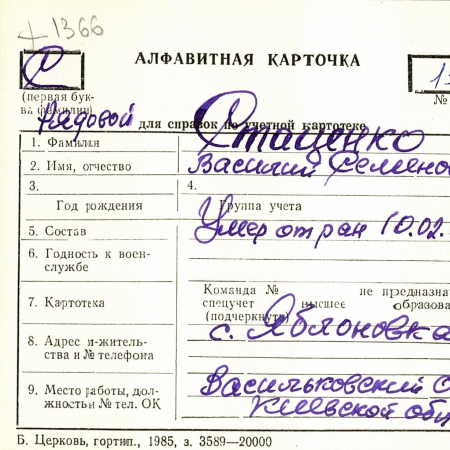 +1366
АЛФАВИТНАЯ КАРТОЧКА
С
(первая бук-
ва фамилии)
№
Рядовой
для справок по учетной картотеке
1. Фамилия
Стаценко
2. Имя, отчество
Василий Семено
3.
4.
Год рождения
Группа учета
5. Состав
Умер от ран 10.02.
6. Годность к воен-
службе
7. Картотека
Команда № не предназна
спецучет высшее образова
(подчеркнуть)
8. Адрес и-житель-
ства и № телефона
с. Яблоновка
9. Место работы, дол-
жность и № тел. ОК
Васильковский
Киевской обл
Б. Церковь, гортип., 1985, з. 3589—20000